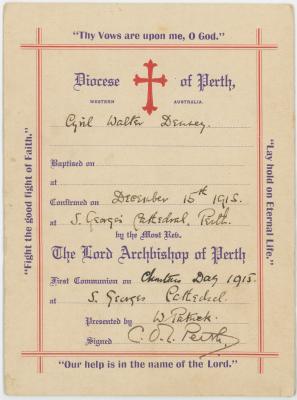 "Thy Vows are upon me, O God."
Diocese of Perth,
WESTERN AUSTRALIA.
Cyril Walter Densey.
Baptised on
at
Confirmed on December 15th 1915.
at S. Georges Cathedral, Perth.
by the Most Rev.
The Lord Archbishop of Perth
First Communion on Christmas Day 1915.
at S. Georges Cathedral
Presented by W. Patrick.
Signed C. O. L. Perth
"Our help is in the name of the Lord."
"Fight the good fight of Faith."
"Lay hold on Eternal Life."